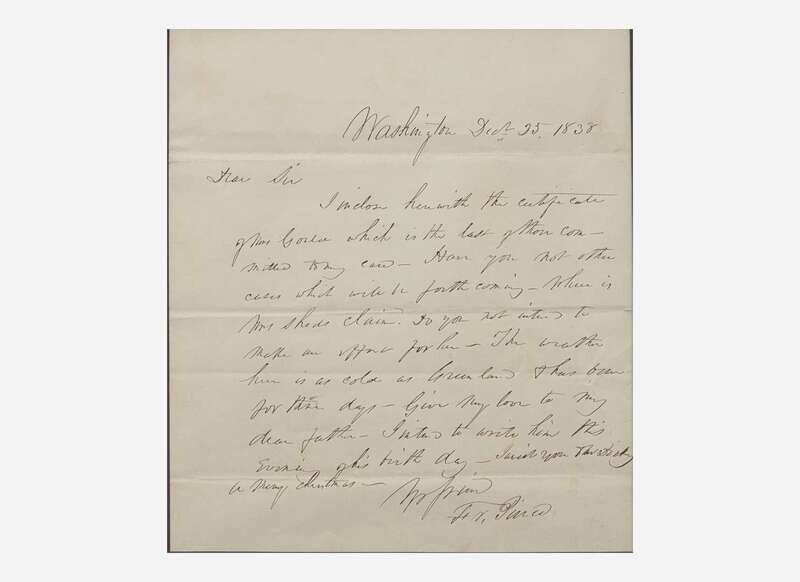 Washington Decr 25. 1838
Dear Sir
I inclose herewith the certificate
of Mrs which is the last of those com-
mitted to my care - Have you not other
cases which will be forthcoming - Where is
Mrs Sheds claim. Do you not intend to
make an effort for her - The weather
here is as cold as Greenland & has been
for three days - Give my love to my
dear father - I intend to write him this
Evening of his birth day - I wish you
a merry christmas -
Yr friend
Fr. Pierce